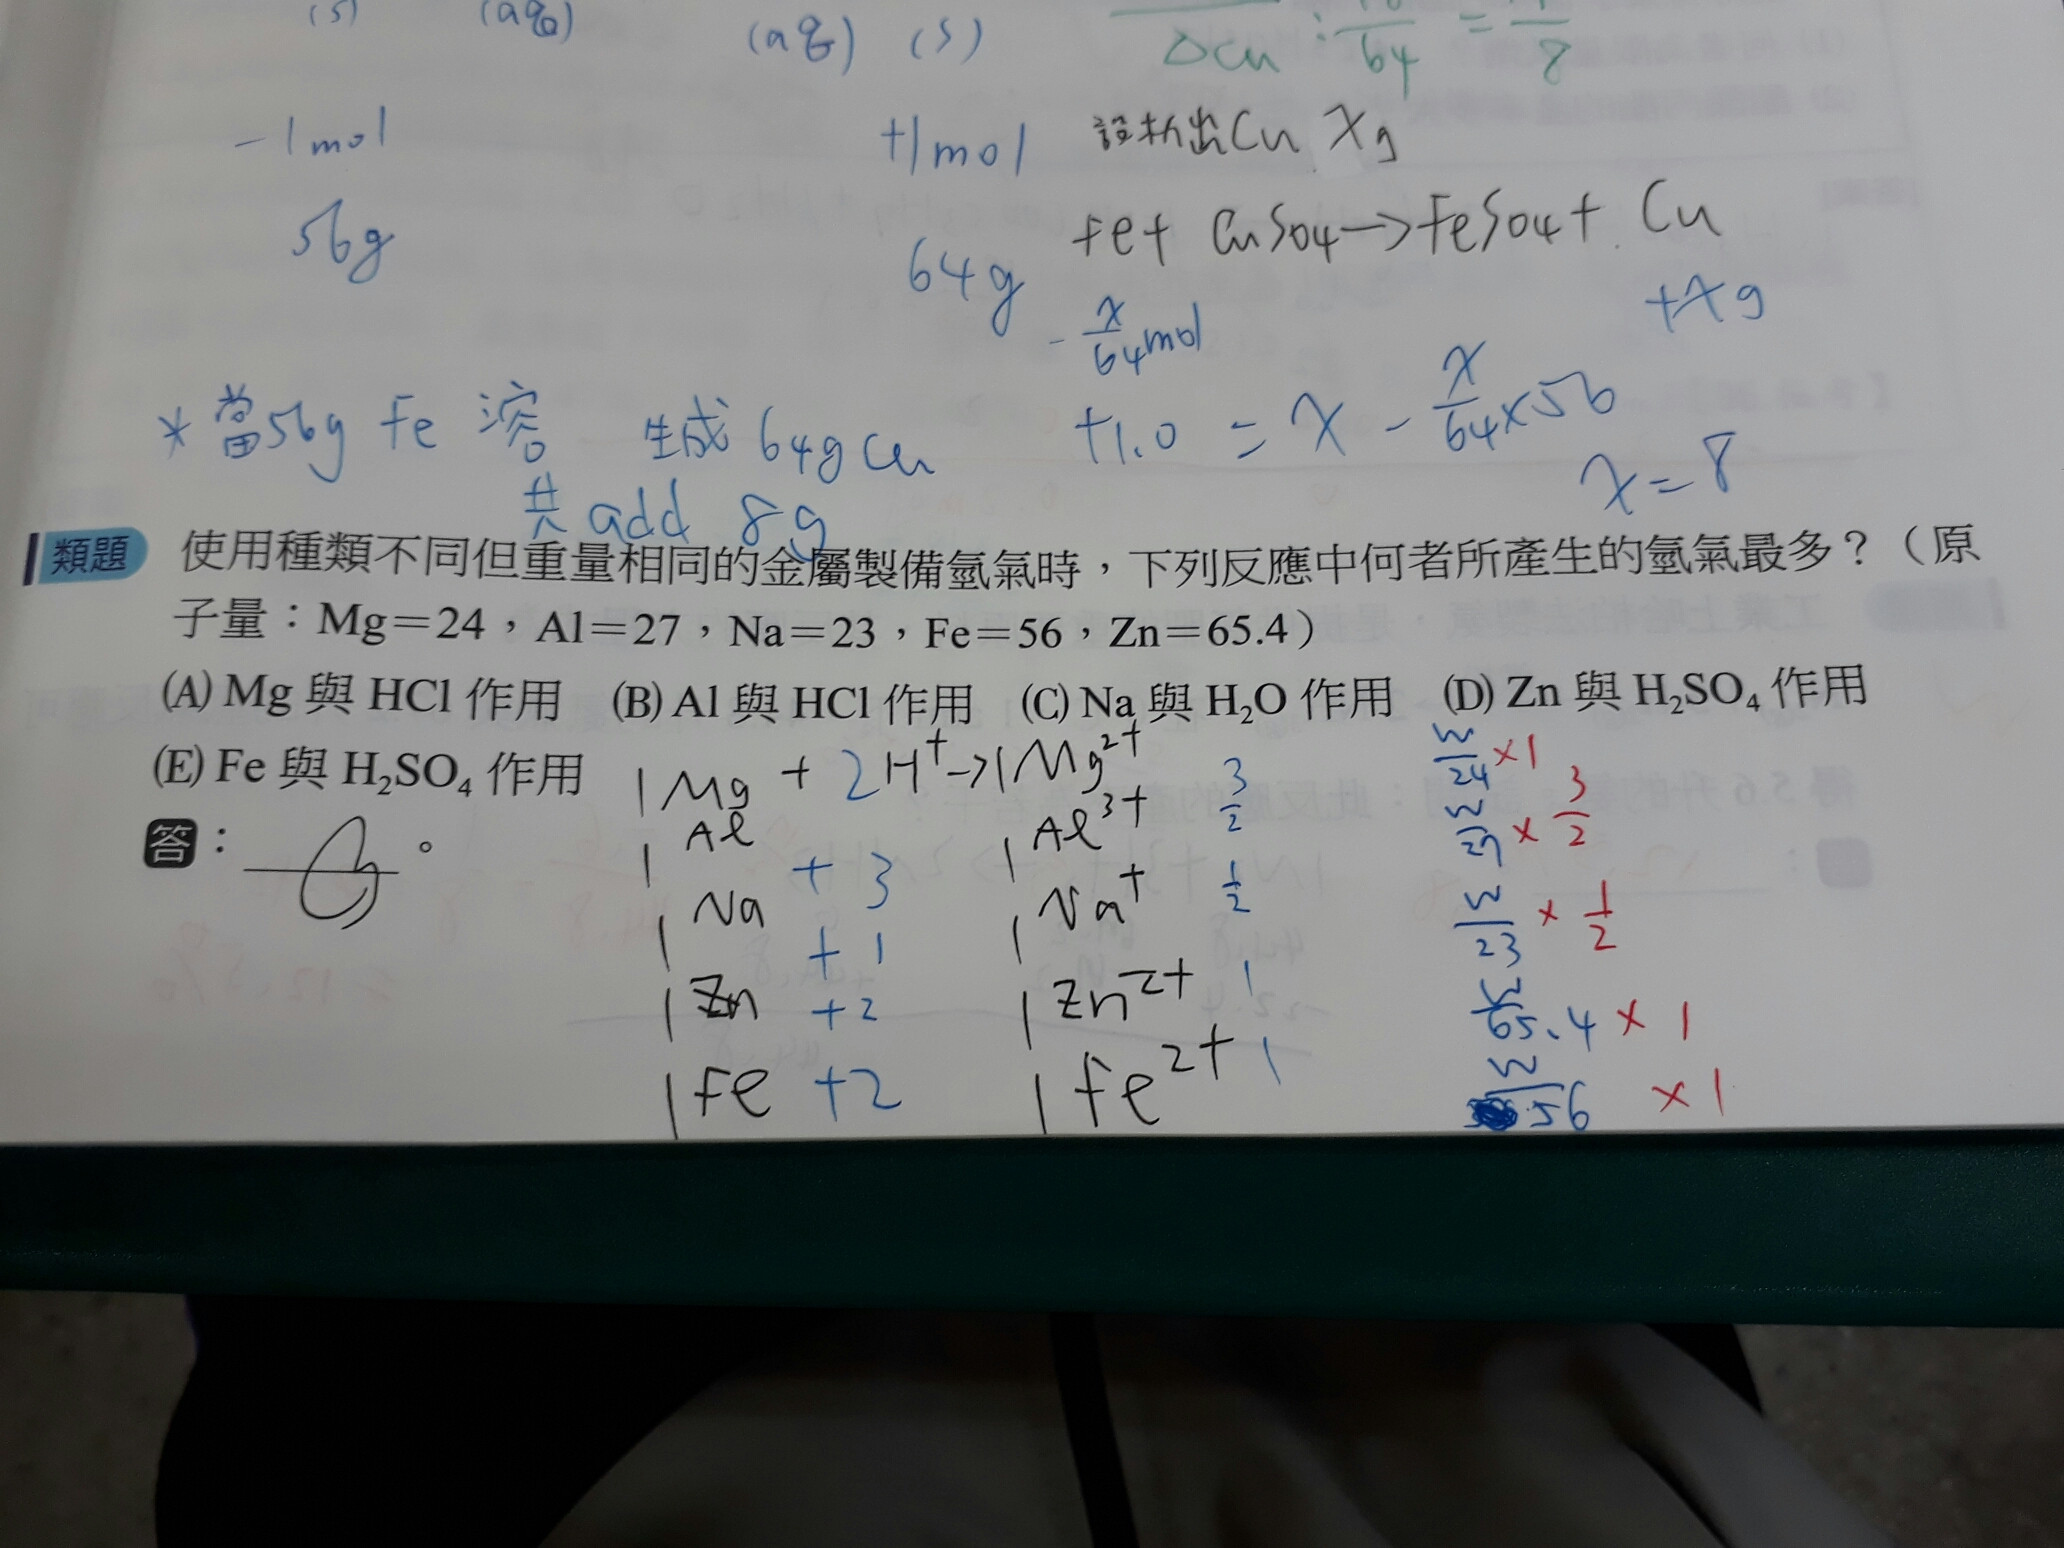 (s) (aq) (aq) (s)
ΔCu : 64 = 8
-1mol +1mol 設析出Cu Xg
56g 64g
Fe+ CuSO4→FeSO4+ Cu
-x/64mol +xg
+1.0 = x - x/64×56
x=8
*當56g Fe 溶 生成64gCu
共add 8g
類題 使用種類不同但重量相同的金屬製備氫氣時，下列反應中何者所產生的氫氣最多？（原
子量：Mg＝24，Al＝27，Na＝23，Fe＝56，Zn＝65.4）
(A) Mg 與 HCl 作用 (B) Al 與 HCl 作用 (C) Na 與 H₂O 作用 (D) Zn 與 H₂SO₄ 作用
(E) Fe 與 H₂SO₄ 作用
答： B 。
1Mg + 2H⁺→1Mg²⁺ W/24 ×1
1Al + 3 1Al³⁺ 3/2 W/27 × 3/2
1Na + 1 1Na⁺ 1/2 W/23 × 1/2
1Zn +2 1Zn²⁺ 1 W/65.4 × 1
1Fe +2 1Fe²⁺ 1 W/56 ×1